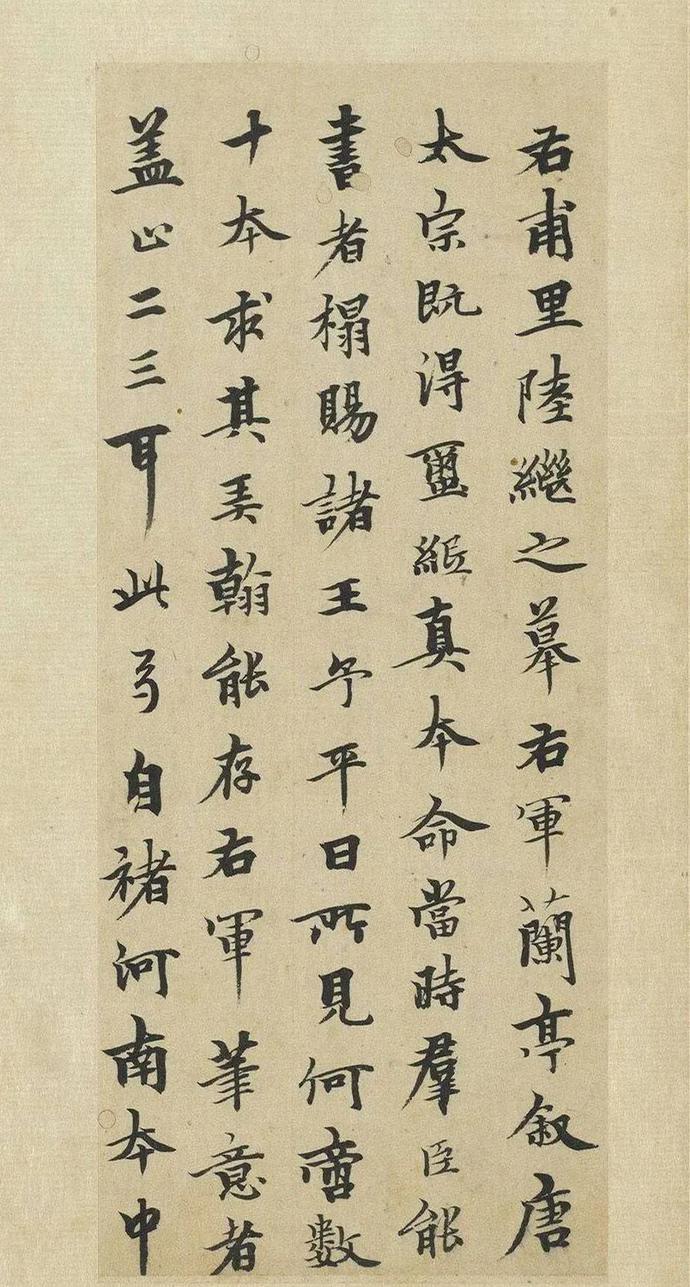 右甫里陸繼之摹右軍蘭亭敘唐
太宗既得蠒紙真本命當時羣臣能
書者榻賜諸王予平日所見何啻數
十本求其弄翰能存右軍筆意者
蓋止二三耳此乃自褚河南本中